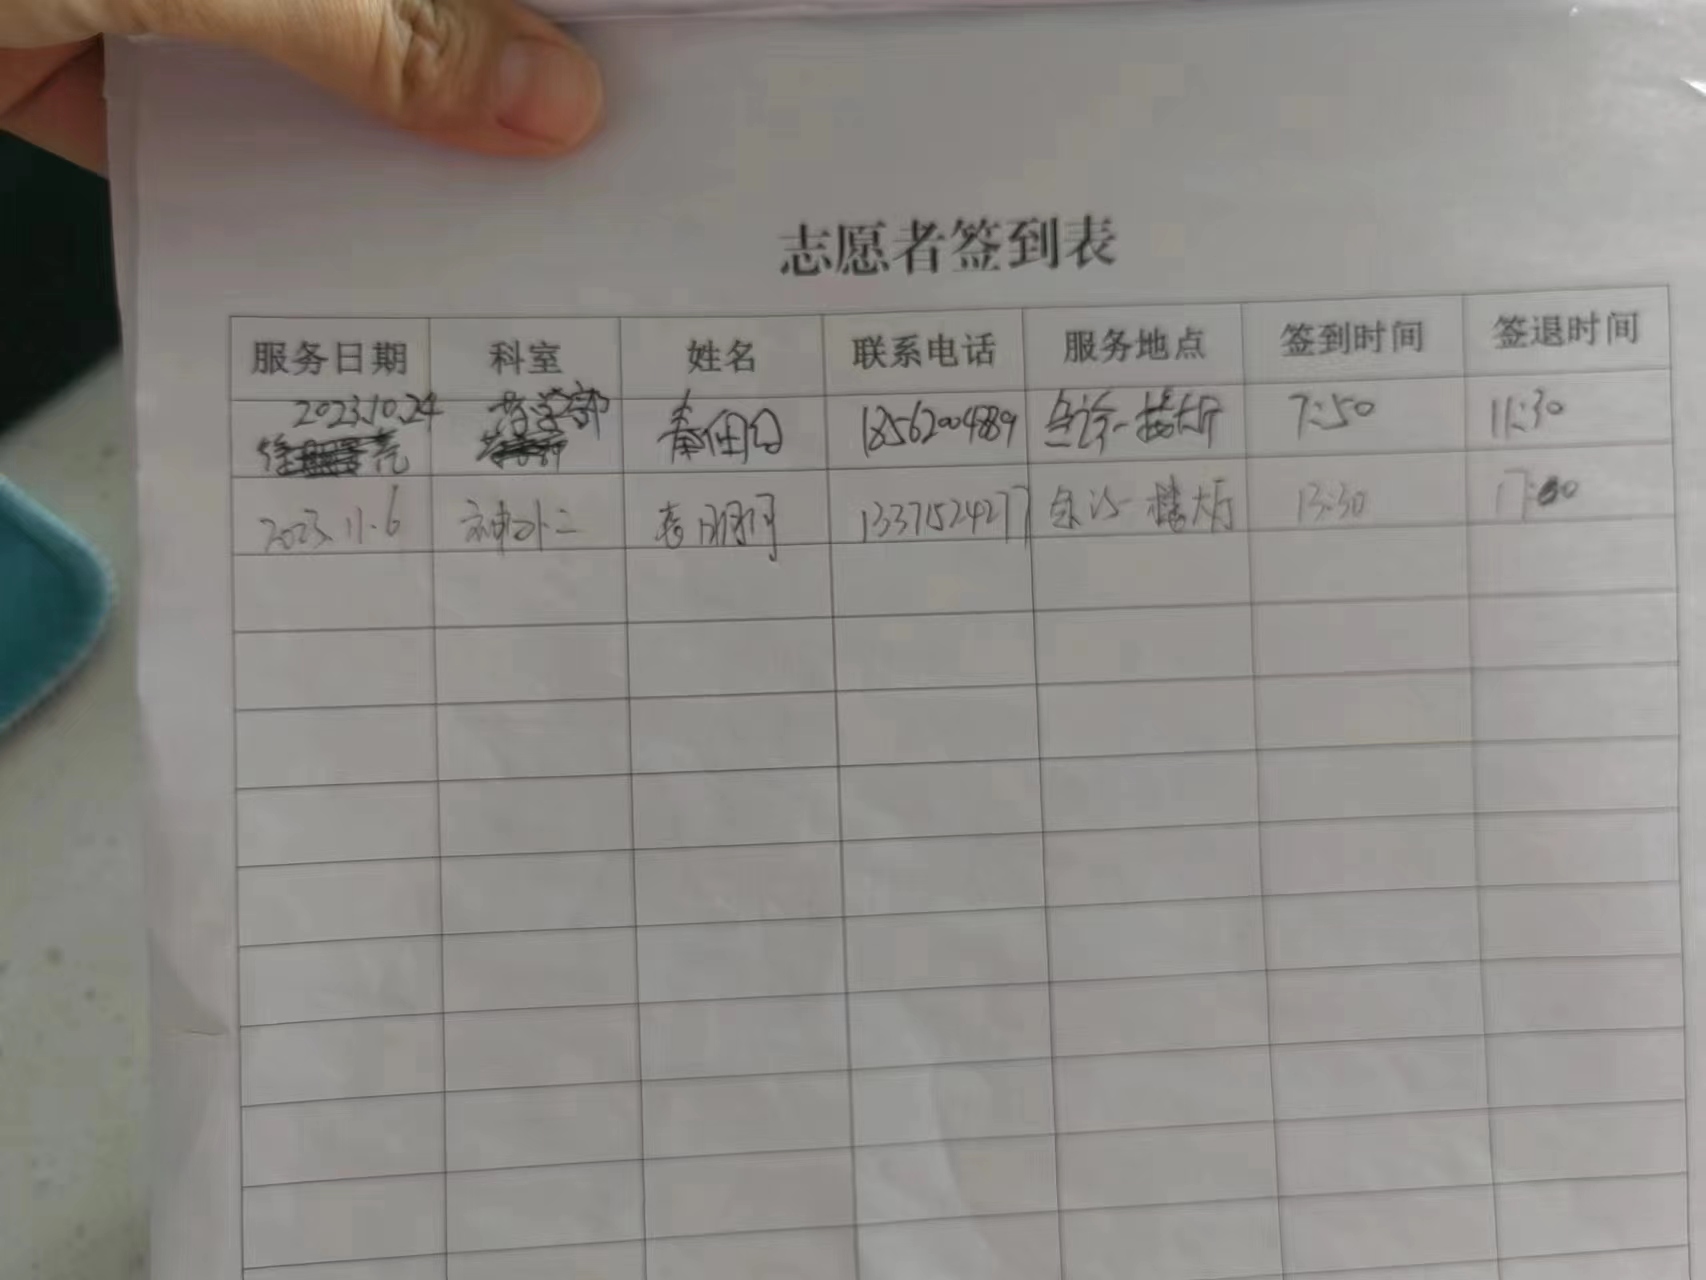 志愿者签到表
服务日期 科室 姓名 联系电话 服务地点 签到时间 签退时间
2023.10.24 药学部 18562004889 一楼大厅 7:50 11:30
2023.11.6 神外二 13371524277 一楼大厅 13:30 17:00